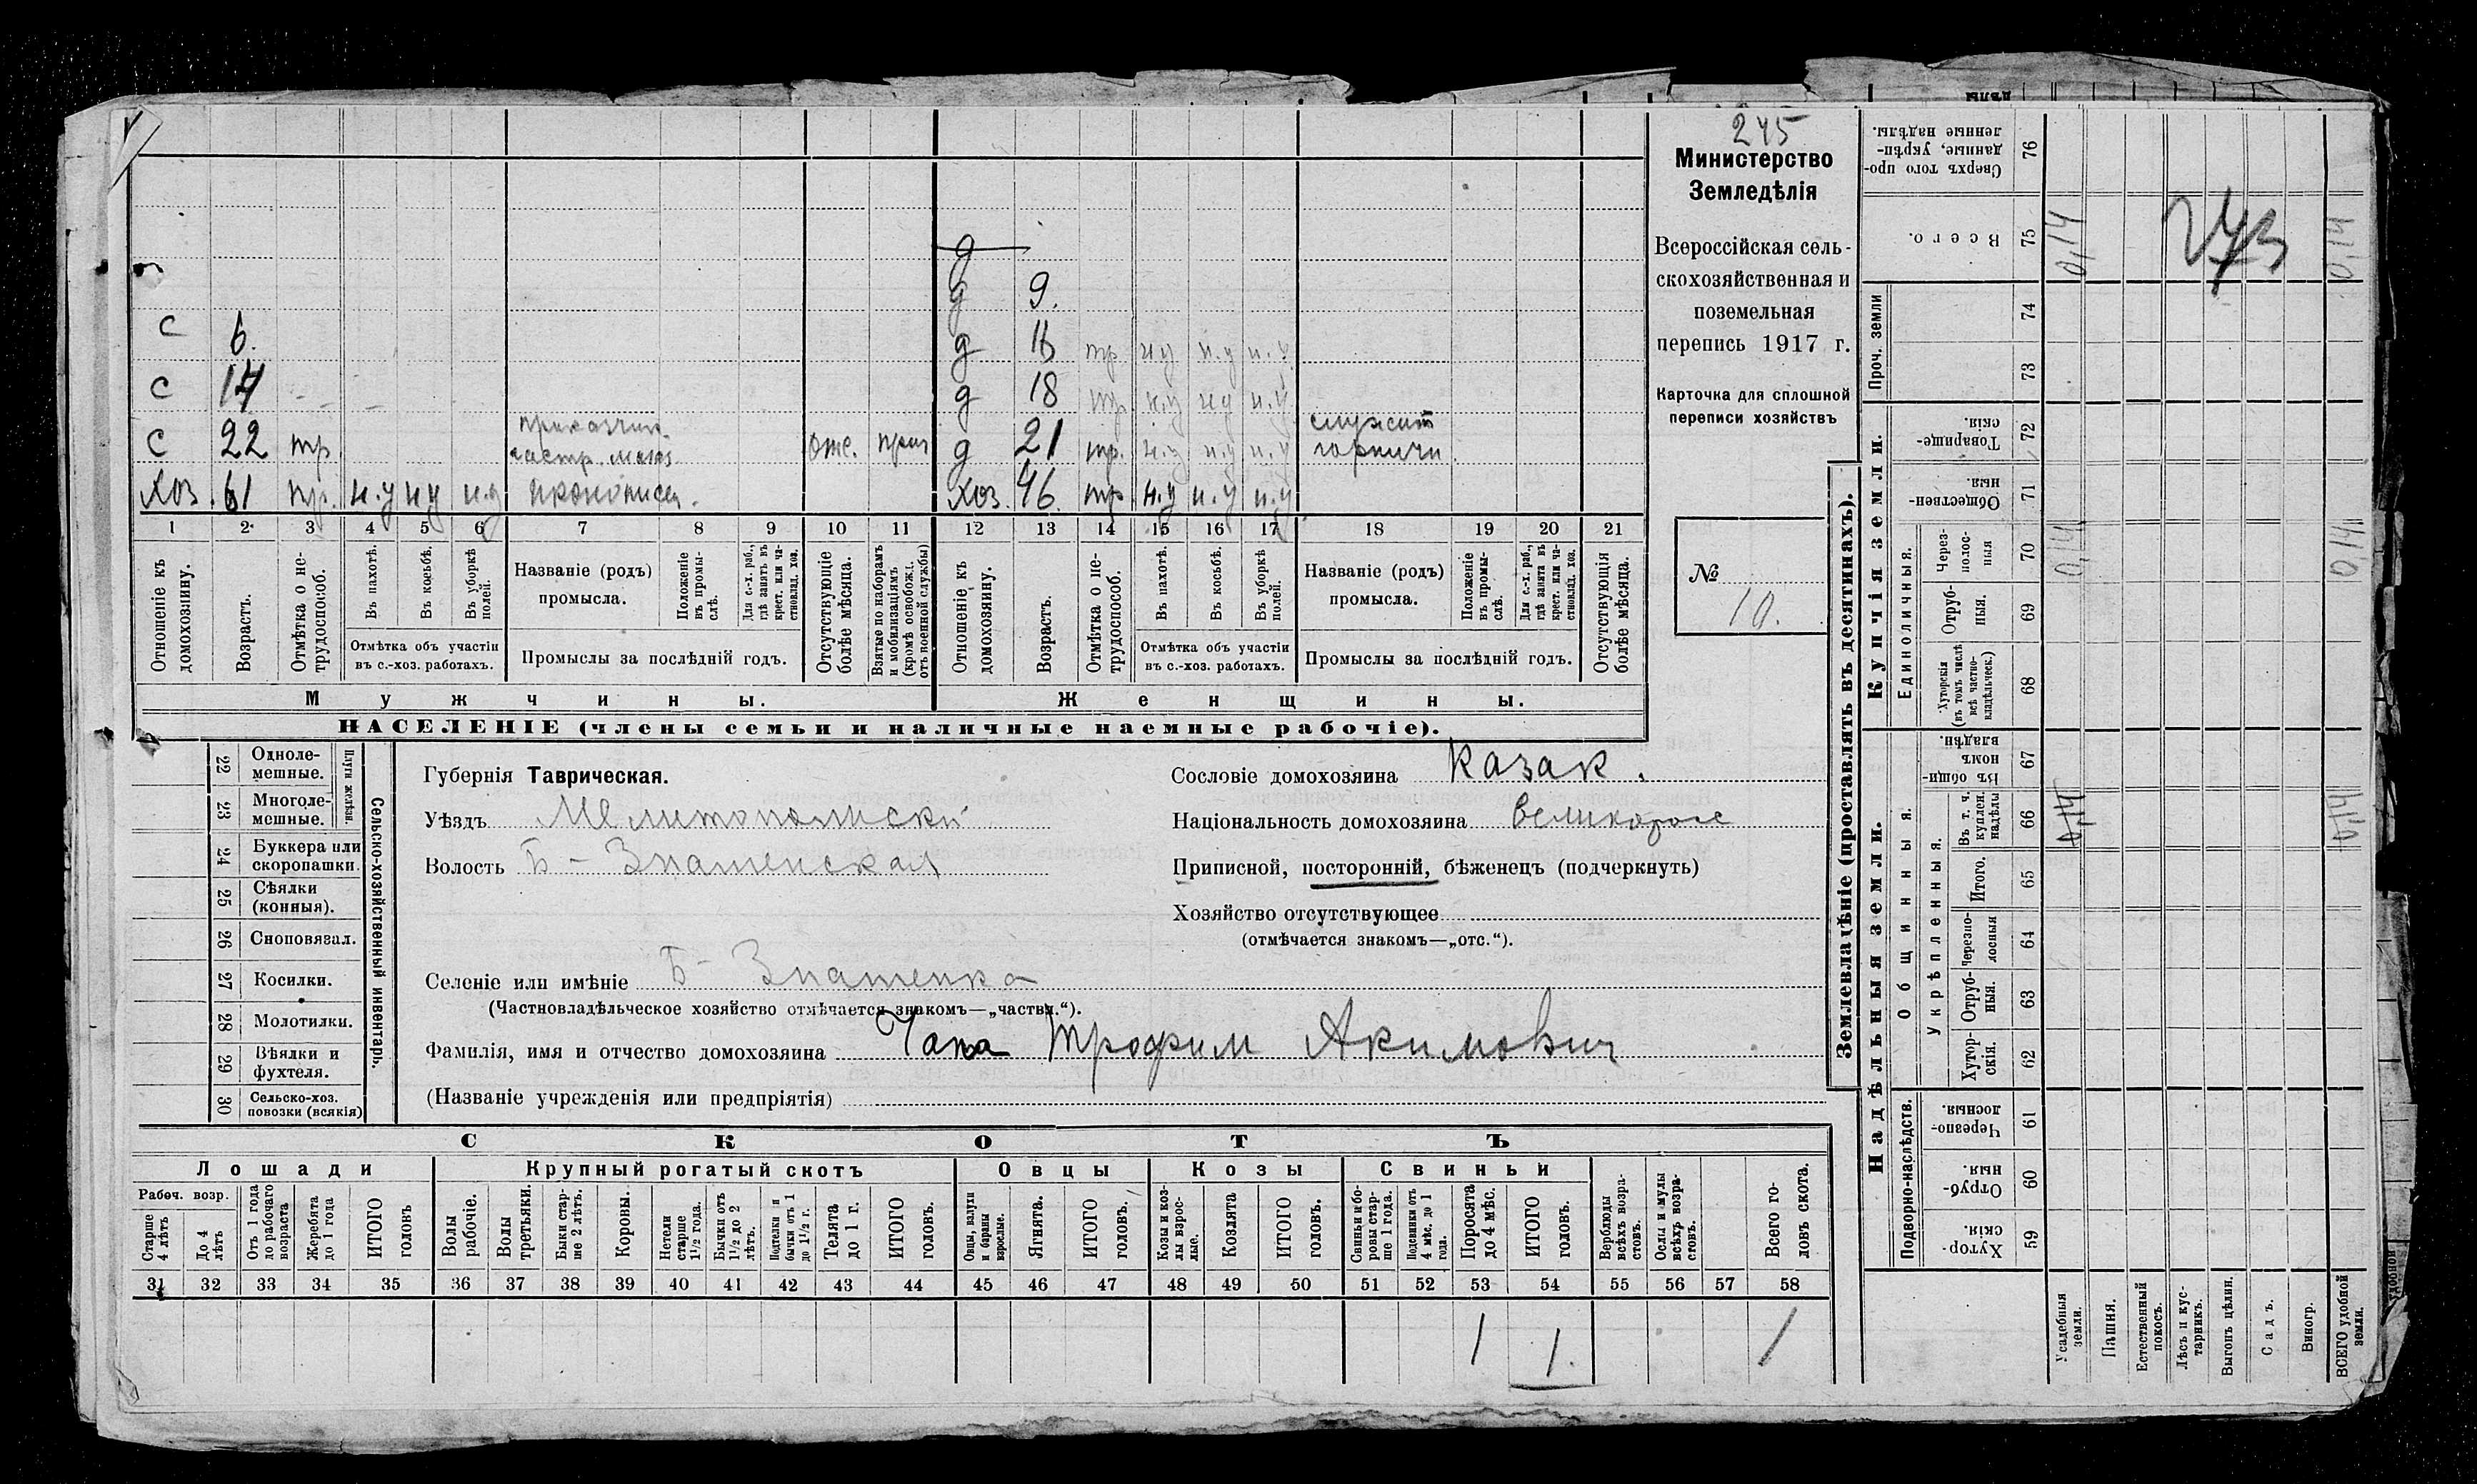 245
Министерство
Земледѣлія
Всероссійская сель-
скохозяйственная и
поземельная
перепись 1917 г.
Карточка для сплошной
переписи хозяйствъ
№
10.
д
д 9.
С 6. д 16 тр н.у н.у н.у
С 14 д 18 тр н.у н.у н.у
С 22 тр отс. приз д 21 тр. н.у н.у н.у служит горничн.
Хоз. 61 тр. н.у н.у н.у хоз. 46 тр. н.у н.у н.у
1 2 3 4 5 6 7 8 9 10 11 12 13 14 15 16 17 18 19 20 21
Отношеніе къ домохозяину.
Возрастъ.
Отмѣтка о не-трудоспособ.
Въ пахотѣ.
Въ косьбѣ.
Въ уборкѣ полей.
Отмѣтка объ участіи
въ с.-хоз. работахъ.
Названіе (родъ)
промысла.
Положеніе въ промы-слѣ.
Для с.-х. раб., гдѣ занятъ въ крест. или ча-стновлад. хоз.
Промыслы за послѣдній годъ.
Отсутствующіе болѣе мѣсяца.
Взятые по наборамъ и мобилизаціямъ (кромѣ освобожд. отъ военной службы)
Отношеніе къ домохозяину.
Возрастъ.
Отмѣтка о не-трудоспособ.
Въ пахотѣ.
Въ косьбѣ.
Въ уборкѣ полей.
Отмѣтка объ участіи
въ с.-хоз. работахъ.
Названіе (родъ)
промысла.
Положеніе въ промы-слѣ.
Для с.-х. раб., гдѣ занята въ крест. или ча-стновлад. хоз.
Промыслы за послѣдній годъ.
Отсутствующія болѣе мѣсяца.
Мужчины.
Женщины.
НАСЕЛЕНІЕ (члены семьи и наличные наемные рабочіе).
22 Одноле-мешные.
23 Многоле-мешные.
Плуги желѣзн.
24 Буккера или скоропашки.
25 Сѣялки (конныя).
26 Сноповязал.
27 Косилки.
28 Молотилки.
29 Вѣялки и фухтеля.
30 Сельско-хоз. повозки (всякія)
Сельско-хозяйственный инвентарь.
Губернія Таврическая.
Уѣздъ Мелитопольскій
Волость Б-Знаменская
Селеніе или имѣніе Б-Знаменка
(Частновладѣльческое хозяйство отмѣчается знакомъ—„частвл.“).
Фамилія, имя и отчество домохозяина Чапа Трофим Акимович
(Названіе учрежденія или предпріятія)
Сословіе домохозяина казак.
Національность домохозяина великоросс
Приписной, посторонній, бѣженецъ (подчеркнуть)
Хозяйство отсутствующее
(отмѣчается знакомъ—„отс.“).
СКОТЪ
Лошади
Крупный рогатый скотъ
Овцы
Козы
Свиньи
Рабоч. возр.
Старше 4 лѣтъ
До 4 лѣтъ
Отъ 1 года до рабочаго возраста
Жеребята до 1 года
ИТОГО головъ
Волы рабочіе.
Волы третьяки.
Быки стар-ше 2 лѣтъ.
Коровы.
Нетели старше 1½ года.
Бычки отъ 1½ до 2 лѣтъ.
Подтелки и бычки отъ 1 до 1½ г.
Телята до 1 г.
ИТОГО головъ.
Овцы, валухи и бараны взрослые.
Ягнята.
ИТОГО головъ.
Козы и коз-лы взрос-лые.
Козлята
ИТОГО головъ.
Свиньи и бо-ровы стар-ше 1 года.
Подсвинки отъ 4 мѣс. до 1 года.
Поросята до 4 мѣс.
ИТОГО головъ.
Верблюды всѣхъ возра-стовъ.
Ослы и мулы всѣхъ возра-стовъ.
Всего го-ловъ скота.
31 32 33 34 35 36 37 38 39 40 41 42 43 44 45 46 47 48 49 50 51 52 53 54 55 56 57 58
1 1. 1
Землевладѣніе (проставлять въ десятинахъ).
Купчія земли.
Надѣльныя земли.
Сверхъ того про-данные, укрѣп-ленные надѣлы. 76
Всего. 75
Проч. земли
74
73
Товарище-скія. 72
Обществен-ныя. 71
Единоличныя.
Через-полос-ныя 70
Отруб-ныя. 69
Хуторскія (въ томъ числѣ всѣ частно-владѣльческ.) 68
Въ общи-номъ владѣн. 67
Общинныя.
Укрѣпленныя.
Въ т. ч. куплен. надѣлы 66
Итого. 65
Черезпо-лосныя 64
Отруб-ныя. 63
Хутор-скія. 62
Подворно-наслѣдств.
Черезпо-лосныя. 61
Отруб-ныя. 60
Хутор-скія. 59
0,14 273 0,14
0,14 0,14
0,14 0,14
Усадебныя земли.
Пашня.
Естественный покосъ.
Лѣсъ и кус-тарникъ.
Выгонъ цѣлин.
Садъ.
Виногр.
ВСЕГО удобной земли.